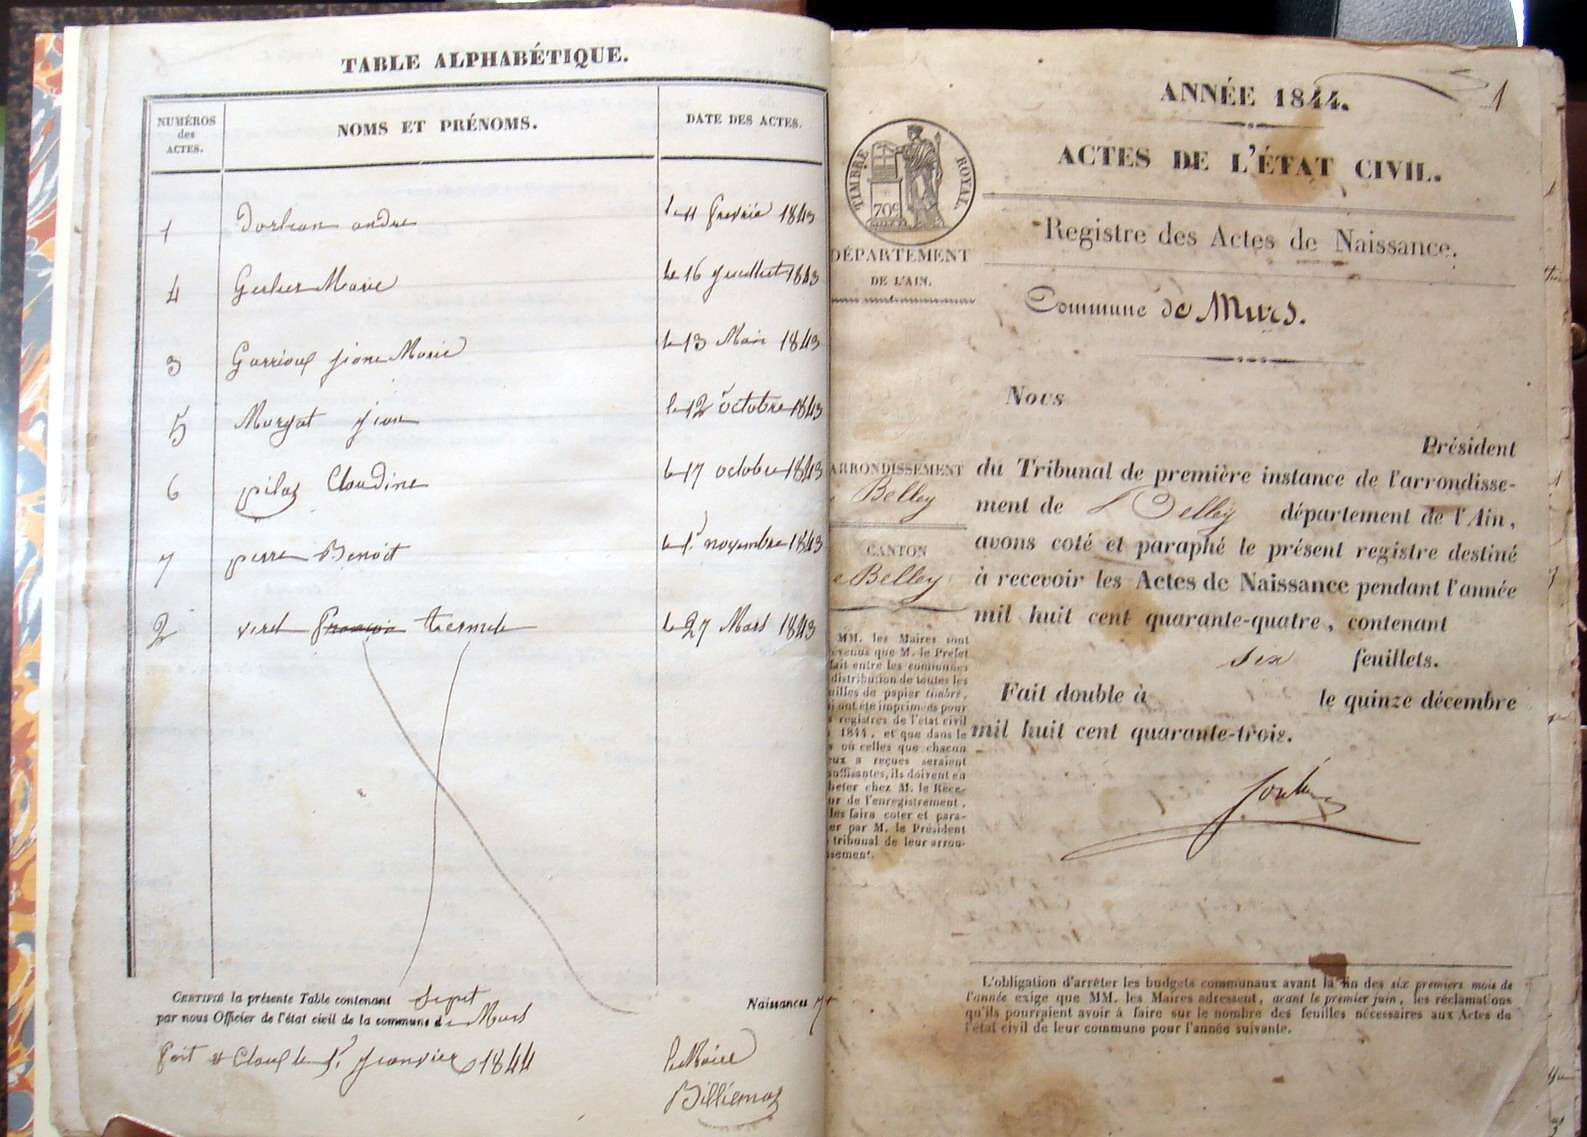 TABLE ALPHABÉTIQUE.
NUMÉROS
des
ACTES.
NOMS ET PRÉNOMS.
DATE DES ACTES.
1 andre le 11 1843
4 Marie le 16 1843
3 Marie le 13 1843
5 Morgat le 12 octobre 1843
6 pilaz Claudine le 17 octobre 1843
7 Benoit le 1r novembre 1843
2 le 27 Mars 1843
CERTIFIÉ la présente Table contenant Sept Naissances 7
par nous Officier de l'état civil de la commune de Murs
fait & Clos le 1r Janvier 1844
le Maire
Billiemaz
1
ANNÉE 1844.
ACTES DE L'ÉTAT CIVIL.
TIMBRE ROYAL.
70c
DÉPARTEMENT
DE L'AIN.
Registre des Actes de Naissance.
Commune de Murs.
ARRONDISSEMENT
Belley
CANTON
e Belley
MM. les Maires sont
evenus que M. le Préfet
fait entre les communes
distribution de toutes les
uilles de papier timbré,
i ont été imprimées pour
s registres de l'état civil
1844, et que dans le
s où celles que chacun
eux a reçues seraient
suffisantes, ils doivent en
heter chez M. le Rece-
ur de l'enregistrement,
les faire coter et para-
er par M. le Président
tribunal de leur arron-
ssement.
Nous
Président
du Tribunal de première instance de l'arrondisse-
ment de Belley département de l'Ain,
avons coté et paraphé le présent registre destiné
à recevoir les Actes de Naissance pendant l'année
mil huit cent quarante-quatre, contenant
six feuillets.
Fait double à le quinze décembre
mil huit cent quarante-trois.
L'obligation d'arrêter les budgets communaux avant la fin des six premiers mois de
l'année exige que MM. les Maires adressent, avant le premier juin, les réclamations
qu'ils pourraient avoir à faire sur le nombre des feuilles nécessaires aux Actes de
l'état civil de leur commune pour l'année suivante.